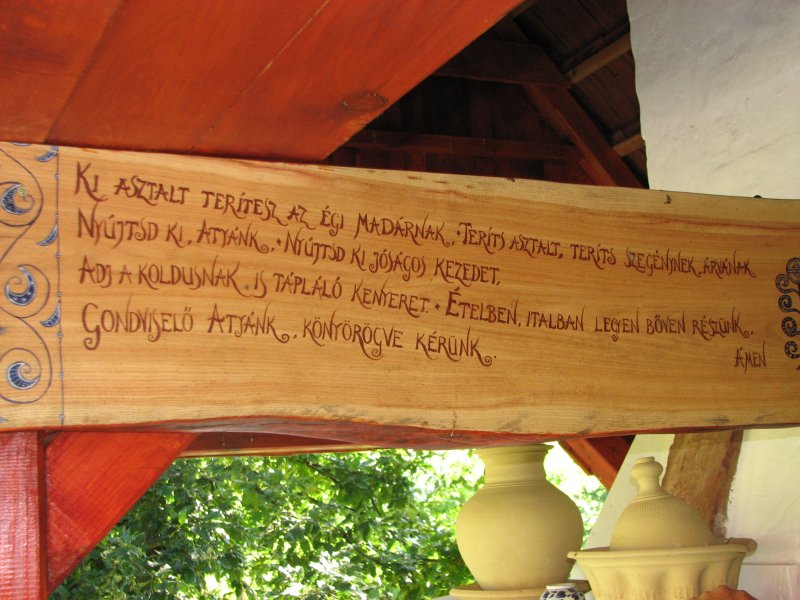 Ki asztalt terítesz az égi madárnak, · Teríts asztalt, teríts szegénynek, árvának
Nyújtsd ki, Atyánk, · Nyújtsd ki jóságos kezedet,
Adj a koldusnak is tápláló kenyeret. · Ételben, italban legyen bőven részünk,
Gondviselő Atyánk, könyörögve kérünk.
Ámen